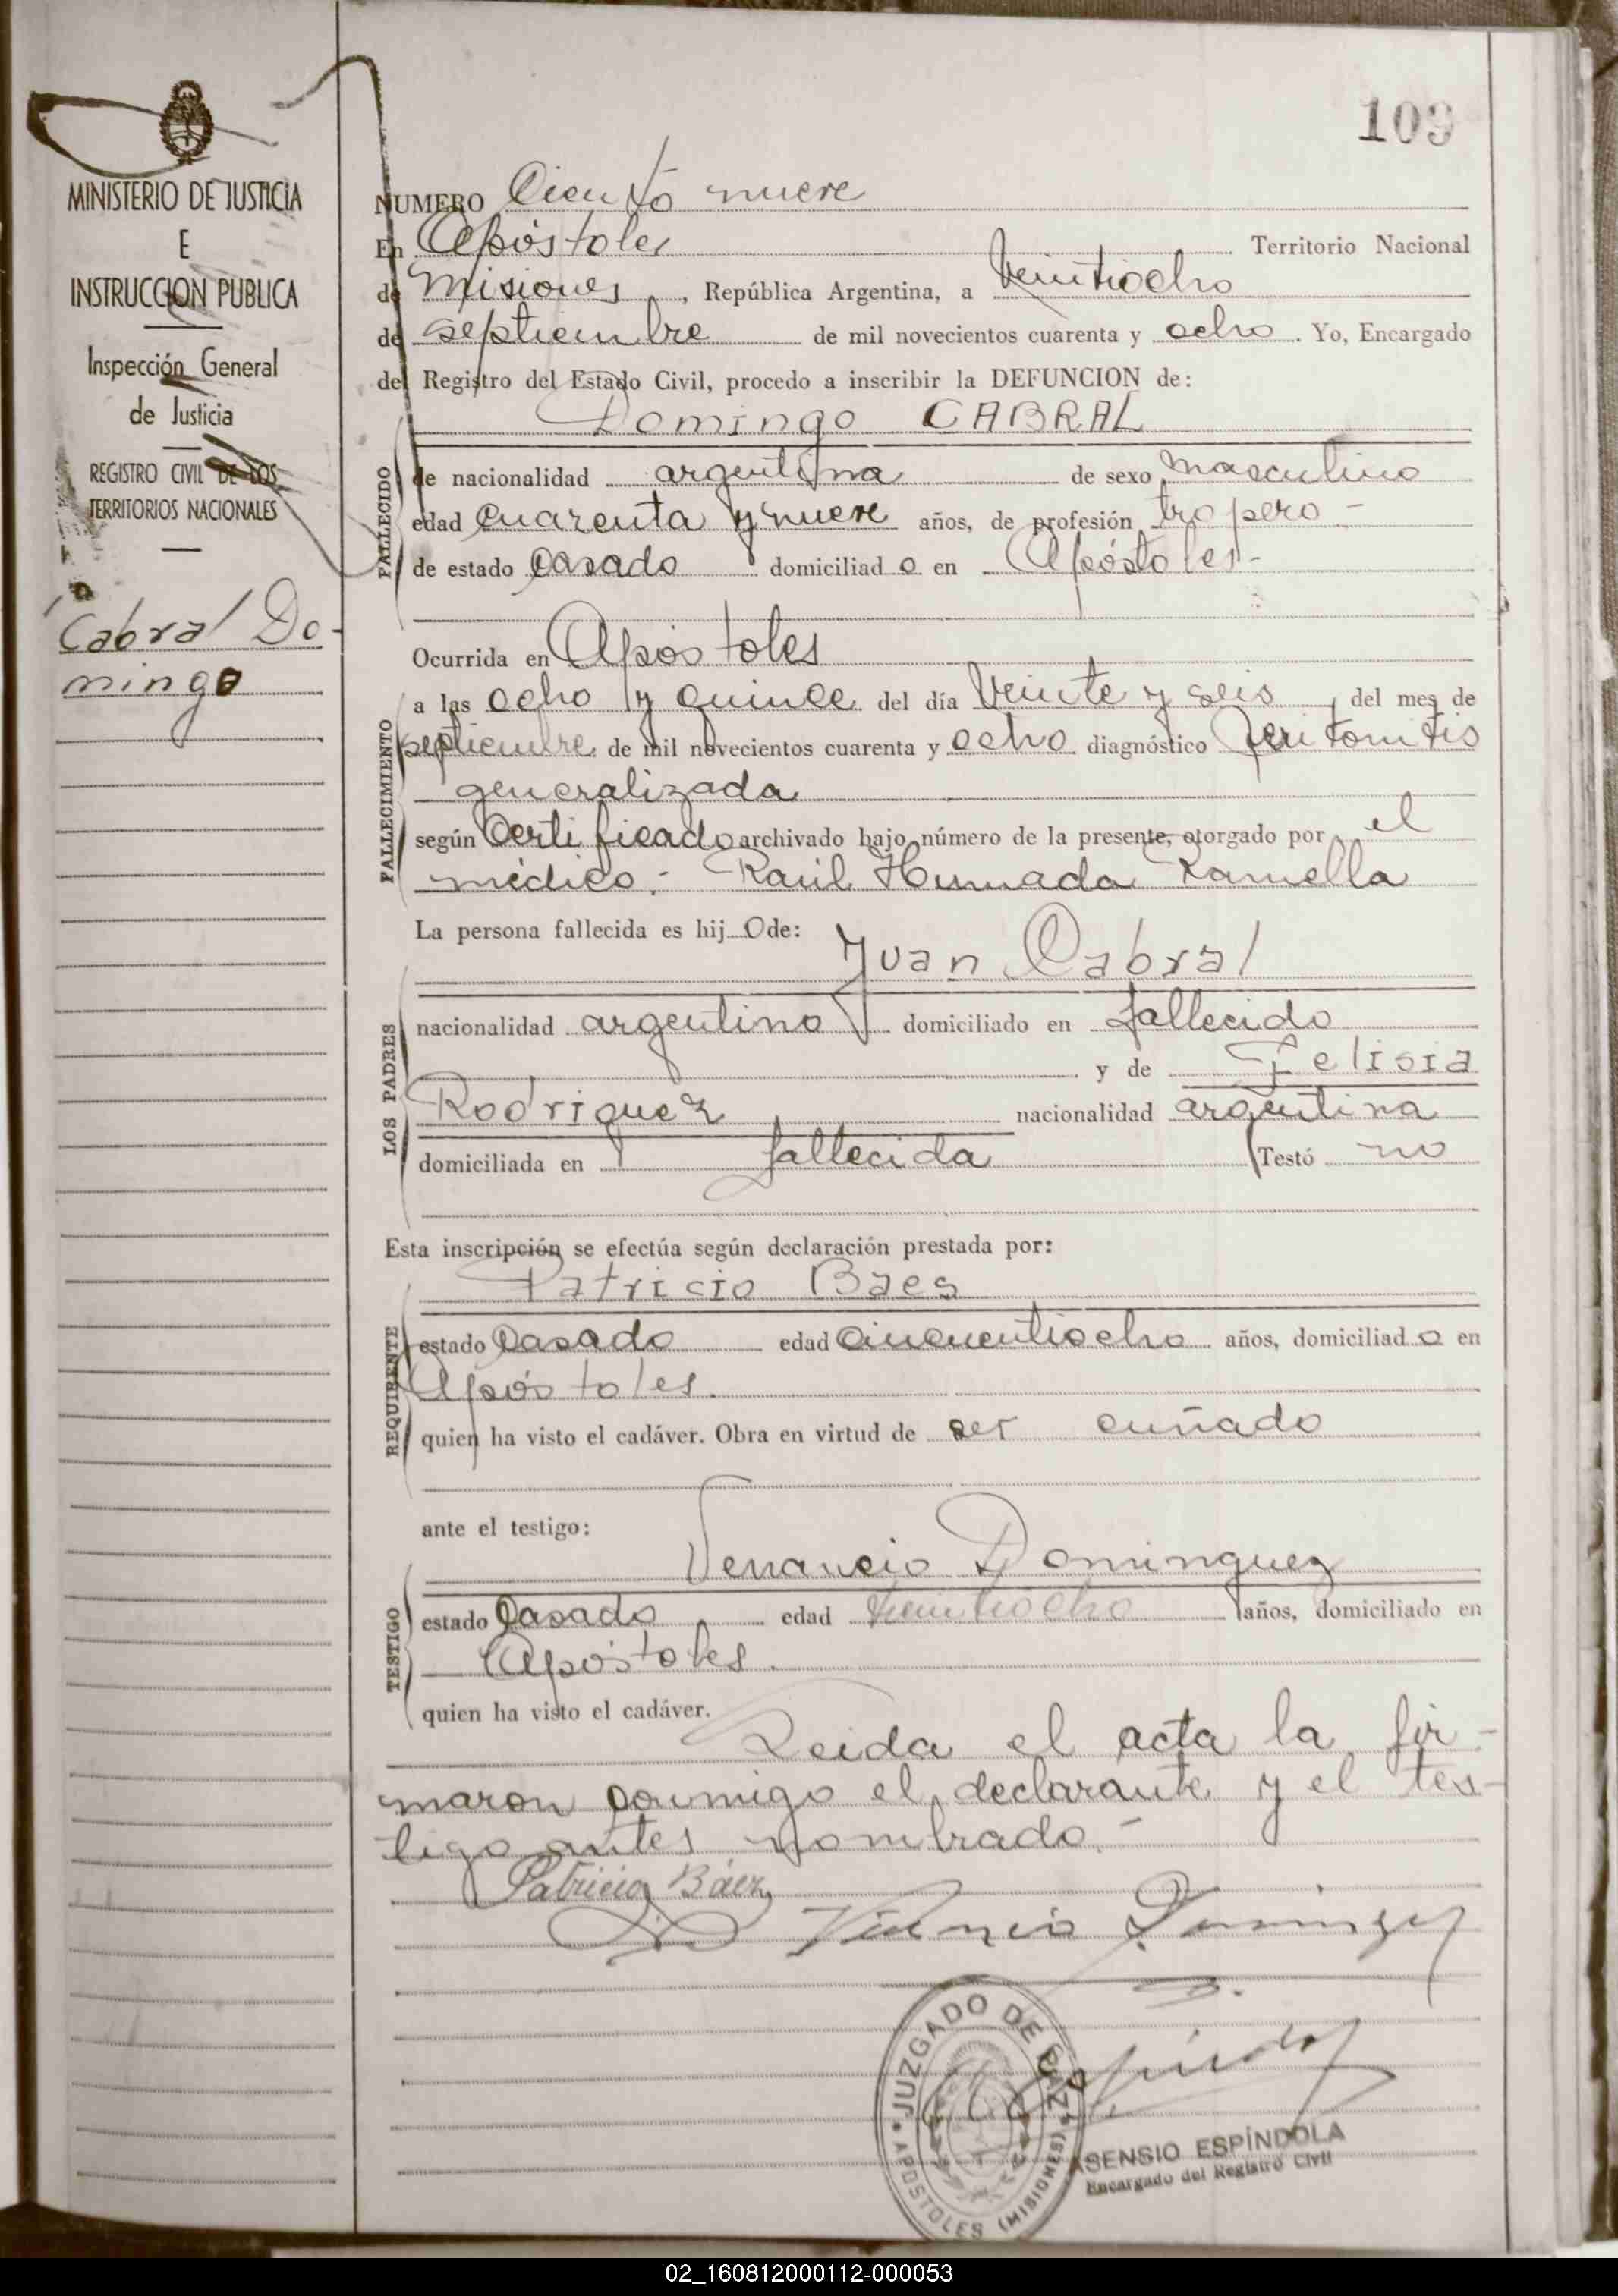 109
MINISTERIO DE JUSTICIA
E
INSTRUCCION PUBLICA
Inspección General
de Justicia
REGISTRO CIVIL DE LOS
TERRITORIOS NACIONALES
Cabral Do-
mingo
NUMERO Ciento nueve
En Apóstoles Territorio Nacional
de Misiones, República Argentina, a veintiocho
de septiembre de mil novecientos cuarenta y ocho. Yo, Encargado
del Registro del Estado Civil, procedo a inscribir la DEFUNCION de:
Domingo CABRAL
FALLECIDO
de nacionalidad argentina de sexo masculino
edad cuarenta y nueve años, de profesión tropero -
de estado casado domiciliado en Apóstoles -
Ocurrida en Apóstoles
FALLECIMIENTO
a las ocho y quince del día veinte y seis, del mes de
septiembre de mil novecientos cuarenta y ocho diagnóstico Peritonitis
generalizada
según Certificado archivado bajo número de la presente, otorgado por el
médico.- Raúl Humada Ramella
La persona fallecida es hijo de:
Juan Cabral
LOS PADRES
nacionalidad argentino domiciliado en fallecido
y de Felisia
Rodriguez nacionalidad argentina
domiciliada en fallecida Testó no
Esta inscripción se efectúa según declaración prestada por:
Patricio Baes
REQUIRENTE
estado casado edad cincuentiocho años, domiciliado en
Apóstoles.
quien ha visto el cadáver. Obra en virtud de ser cuñado
ante el testigo:
Venancio Dominguez
TESTIGO
estado casado edad años, domiciliado en
Apóstoles.
quien ha visto el cadáver.
Leida el acta la fir-
maron conmigo el declarante y el tes-
tigo antes nombrado.-
Patricio Báez
Venancio Dominguez
JUZGADO DE PAZ
APOSTOLES (MISIONES)
ASENSIO ESPÍNDOLA
Encargado del Registro Civil
02_160812000112-000053